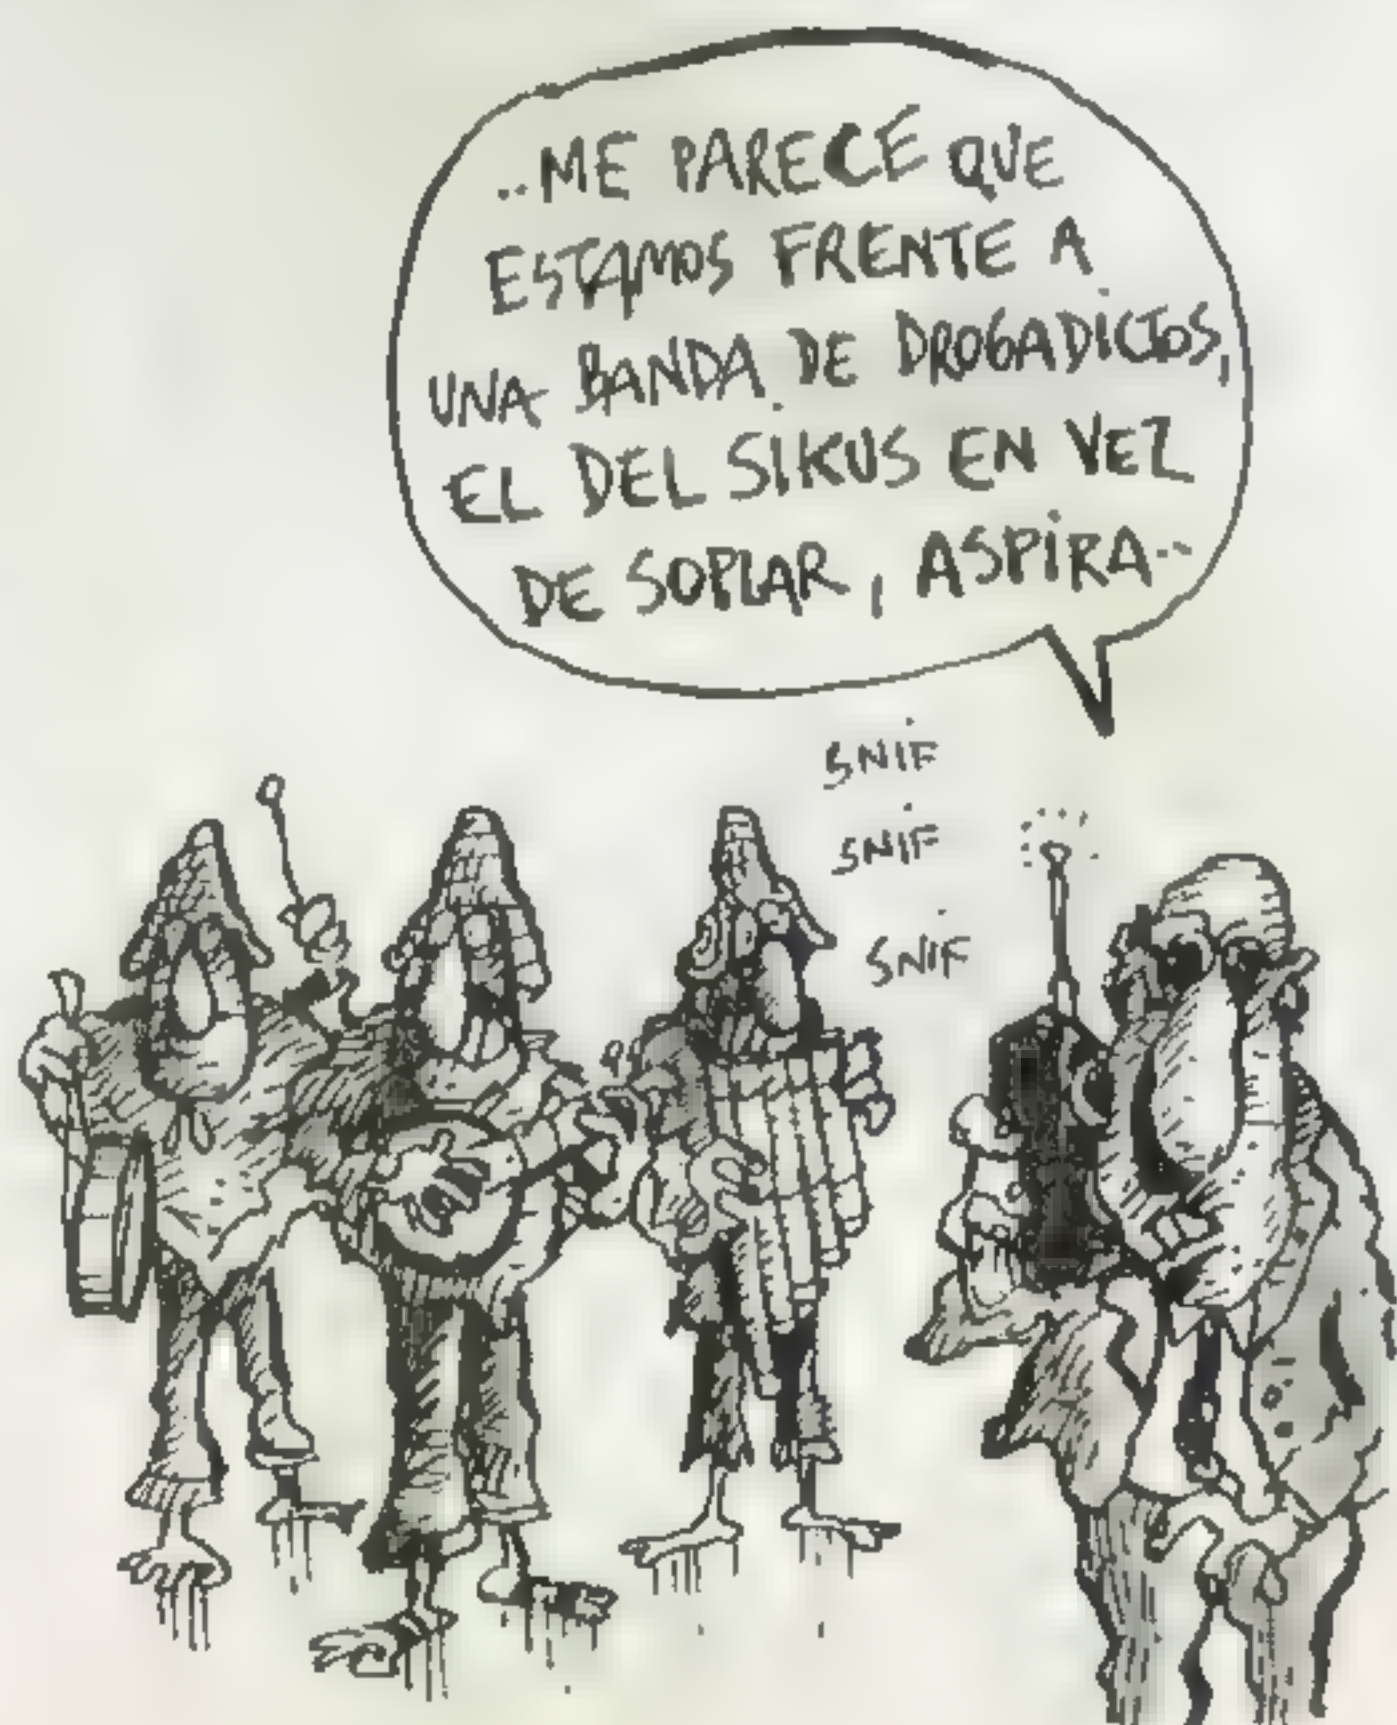 ..ME PARECE QUE
ESTAMOS FRENTE A
UNA BANDA DE DROGADICTOS,
EL DEL SIKUS EN VEZ
DE SOPLAR, ASPIRA..
SNIF
SNIF
SNIF